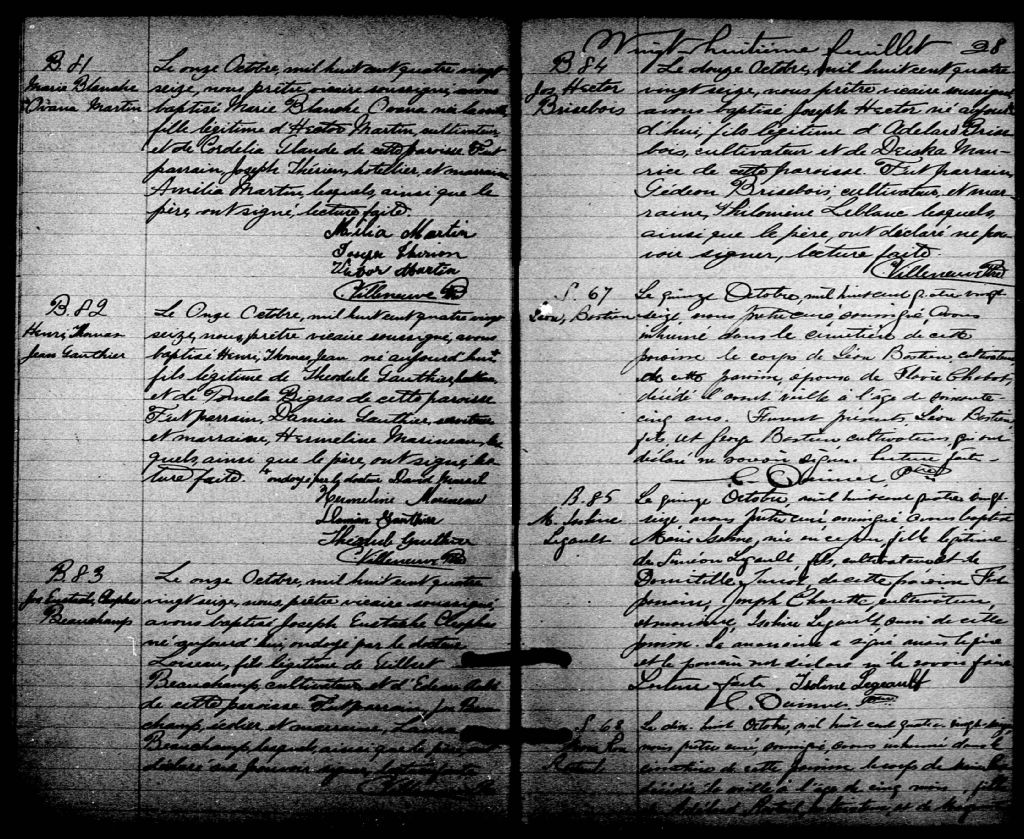 B. 81
Marie Blanche
Ovana Martin
Le onze Octobre, mil huit cent quatre vingt
seize, nous prêtre vicaire soussigné, avons
baptisé Marie Blanche Ovana née la veille
fille légitime d'Hector Martin, cultivateur
et de Cordelia Claude de cette paroisse Fut
parrain, Joseph Thérien, hotellier, et marraine
Amélia Martin, lesquels, ainsi que le
père, ont signé, lecture faite.
Mélia Martin
Joseph Therien
Martin
Villeneuve Ptr
B. 82
Henri, Thomas
Jean Gauthier
Le Onze Octobre, mil huit cent quatre vingt
seize, nous, prêtre vicaire soussigné, avons
baptisé Henri, Thomas, Jean né aujourd'hui
fils légitime de Theodule Gauthier,
et de Bigras de cette paroisse
Fut parrain, Damien Gauthier,
et marraine, Hermeline Marineau, les
quels, ainsi que le père, ont signé, lec
ture faite. ondoyé par le docteur David
Hermeline Marineau
Damien Gauthier
Théodule Gauthier
Villeneuve Ptr
B. 83
Jos Eustache, Cléophas
Beauchamp
Le onze Octobre, mil huit cent quatre
vingt seize, nous, prêtre vicaire soussigné,
avons baptisé Joseph Eustache Cléophas
né aujourd'hui, ondoyé par le docteur
fils légitime de Gilbert
Beauchamp, cultivateur et d'
de cette paroisse Fut parrain, Jos Beau
champ, et marraine, Laura
Beauchamp, lesquels, ainsi que le père, ont
déclaré ne pouvoir signer, lecture faite
Villeneuve Ptr
Vingt-huitième feuillet 28
B. 84
Jos Hector
Brisebois
Le douze Octobre, mil huit cent quatre
vingt seize, nous prêtre vicaire soussigné
avons baptisé Joseph Hector né aujour
d'hui, fils légitime d'Adelard Brise
bois, cultivateur et de Mau
rice de cette paroisse. Fut parrain,
Gédeon Brisebois, cultivateur, et mar
raine, Philomène Leblanc lesquels,
ainsi que le père, ont déclaré ne pou
voir signer, lecture faite.
Villeneuve Ptr
S. 67
Léon, Bastien
Le quinze Octobre, mil huit cent quatre vingt
seize nous prêtre curé soussigné avons
inhumé dans le cimetière de cette
paroisse le corps de Léon Bastien, cultivateur
de cette paroisse, époux de Flavie Chabot,
décédé l'avant veille à l'âge de soixante
cinq ans. Furent présents, Léon Bastien
fils, et George Bastien cultivateurs, qui ont
déclaré ne savoir signer. Lecture faite-
Ptre
B. 85
M. Isoline
Legault
Le quinze Octobre, mil huit cent quatre vingt
seize, nous prêtre curé soussigné avons baptisé
Marie Isoline, née en ce jour, fille légitime
de Siméon Legault, fils, cultivateur et de
Domitilde de cette paroisse Fut
parrain, Joseph Charette, cultivateur,
et marraine, Isoline Legault, aussi de cette
paroisse. La marraine a signé avec
et le parrain a déclaré ne le savoir faire
Lecture faite. Isoline Legault
Ptre
S. 68
Le dix huit Octobre, mil huit cent quatre vingt seize,
nous prêtre curé, soussigné, avons inhumé dans le
cimetière de cette paroisse le corps de
décédée la veille à l'âge de cinq mois, fille
cultivateur, et de